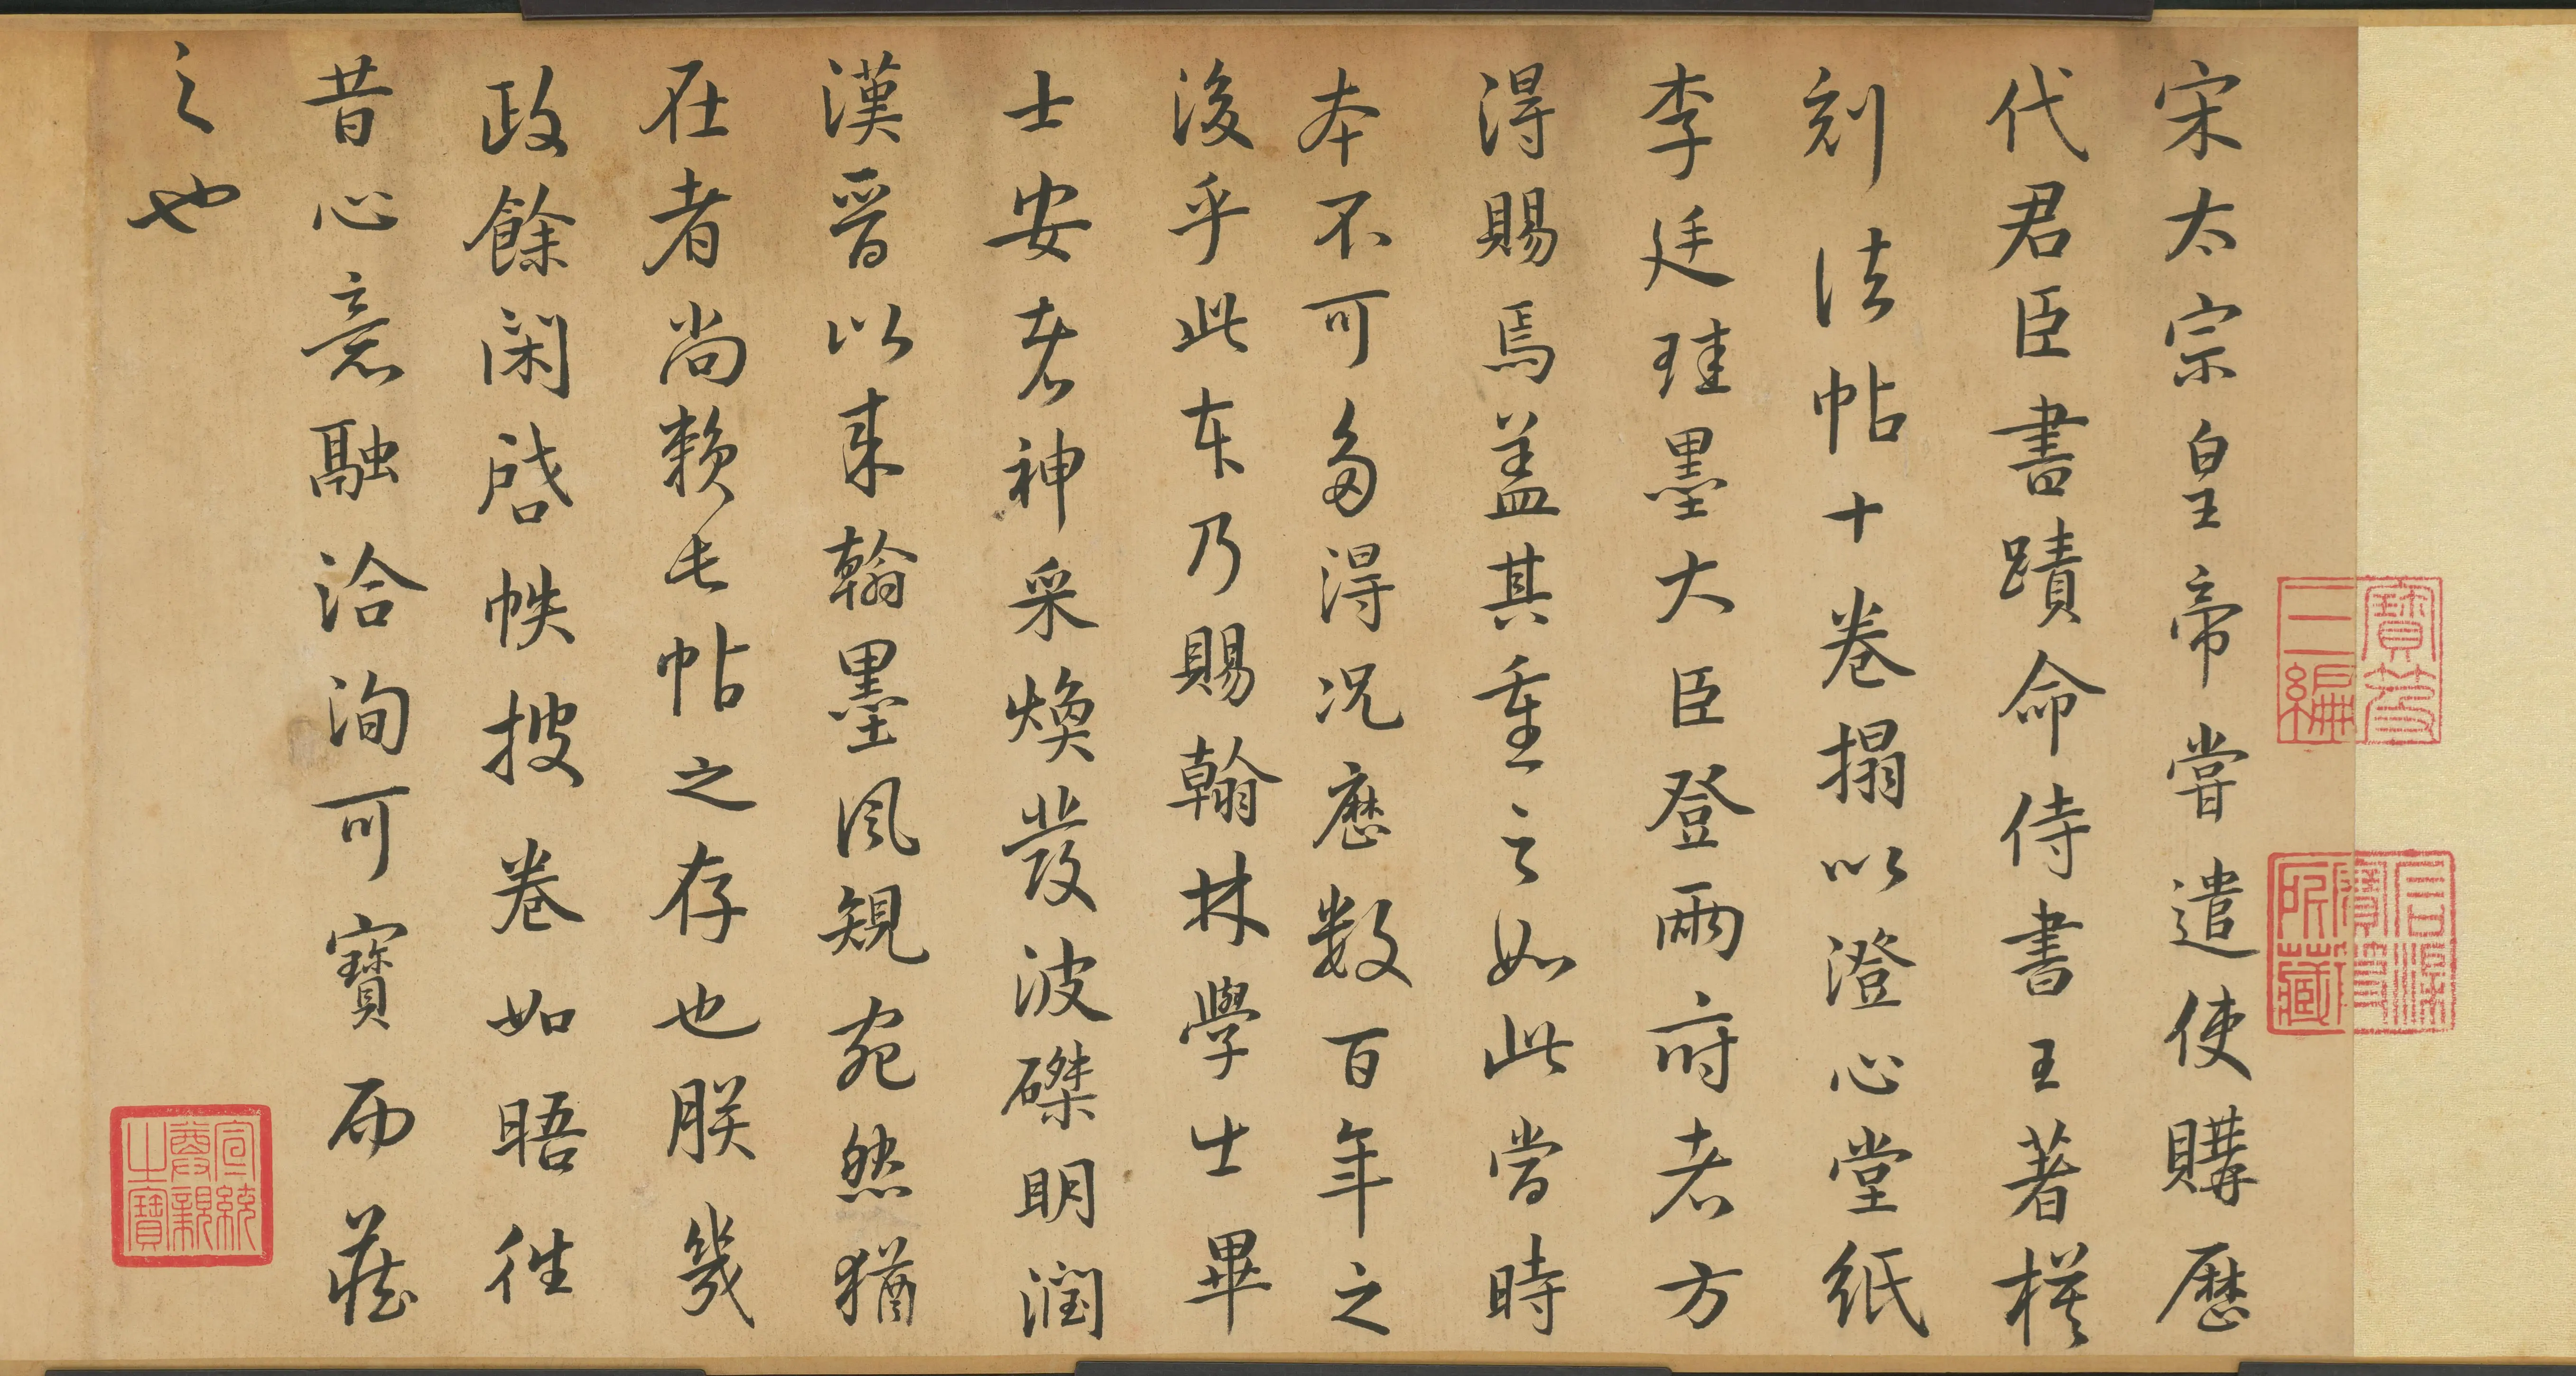 宋太宗皇帝嘗遣使購歷
代君臣書蹟命侍書王著模
刻法帖十卷搨以澄心堂紙
李廷珪墨大臣登兩府者方
得賜焉蓋其重之如此當時
本不可多得況歷數百年之
後乎此本乃賜翰林學士畢
士安者神采煥發波磔明潤
漢晉以來翰墨風規宛然猶
在者尚賴是帖之存也朕幾
政餘閑啓帙披卷如晤往
昔心意融洽洵可寶而藏
之也
寶笈
三編
宣統
尊親
之寶